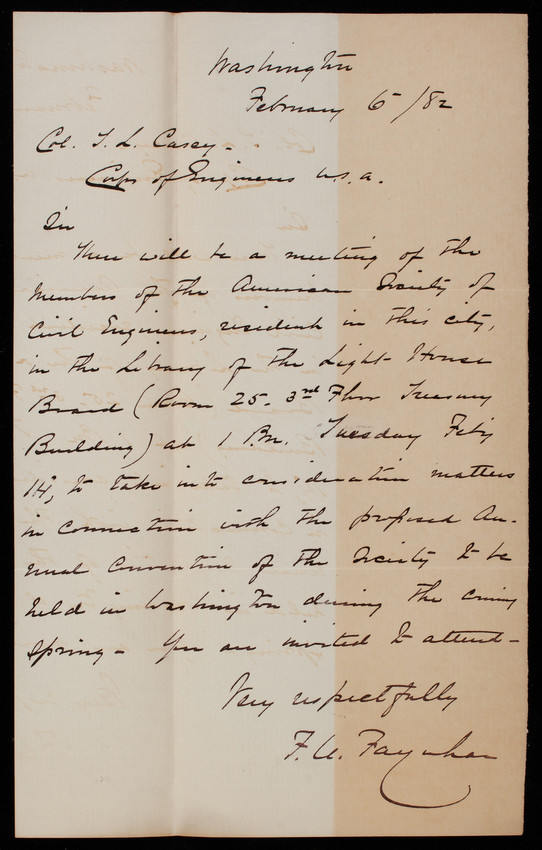 Washington
February 6/82
Col. T. L. Casey-
Corps of Engineers U.S.A.
Sir
There will be a meeting of the
Members of the American Society of
Civil Engineers, resident in this city,
in the Library of the Light House
Board (Room 25. 3rd Floor Treasury
Building) at 1 P.m. Tuesday Feb'y
14, to take into consideration matters
in connection with the proposed An-
nual Convention of the Society to be
held in Washington during the coming
Spring - You are invited to attend -
Very respectfully
F. U. Farquhar